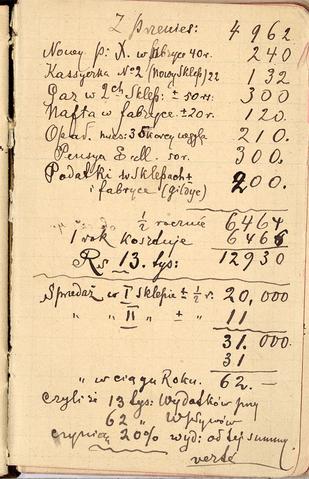 Z przenies: 4962
Nowy p: X. w fabryce 40 r. 240
Kassyerka No 2 (Nowy Sklep) 22 132
Gaz w 2ch Sklep: ± 50 rs: 300
Nafta w fabryce ± 20 r. 120.
Opał. 35 korcy węgla 210.
Pensya E. 50 r. 300.
Podatki w Sklepach +
i fabryce (gildye) 200.
" " ½ rocznie 6464
1 rok kosztuje 6466
Rs 13. tys: 12930
Sprzedaż w I Sklepie ± ½ r: 20,000
" " II " ± " 11
31.000.
31
" w ciągu Roku. 62.—
czyli że 13 tys: Wydatków przy
62 " Wpływów
czynią 20% wyd: od tej summy.
verte